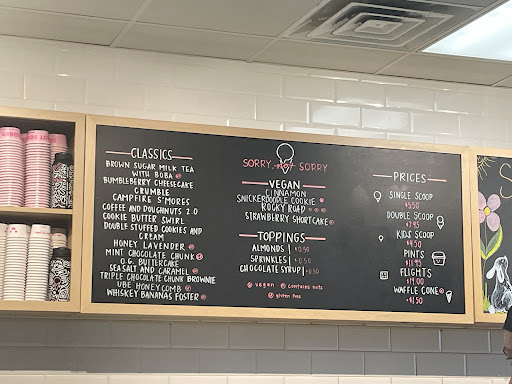 CLASSICS
BROWN SUGAR MILK TEA
WITH BOBA
BUMBLEBERRY CHEESECAKE
CRUMBLE
CAMPFIRE S'MORES
COFFEE AND DOUGHNUTS 2.0
COOKIE BUTTER SWIRL
DOUBLE STUFFED COOKIES AND
CREAM
HONEY LAVENDER
MINT CHOCOLATE CHUNK
O.G. BUTTERCAKE
SEA SALT AND CARAMEL
TRIPLE CHOCOLATE CHUNK BROWNIE
UBE HONEYCOMB
WHISKEY BANANAS FOSTER
SORRY not SORRY
VEGAN
CINNAMON
SNICKERDOODLE COOKIE
ROCKY ROAD
STRAWBERRY SHORTCAKE
TOPPINGS
ALMONDS | $0.50
SPRINKLES | $0.50
CHOCOLATE SYRUP | $0.50
vegan contains nuts
gluten free
PRICES
SINGLE SCOOP
$5.50
DOUBLE SCOOP
$7.95
KIDS SCOOP
$4.50
PINTS
FLIGHTS
$14.00
WAFFLE CONE
+$1.50